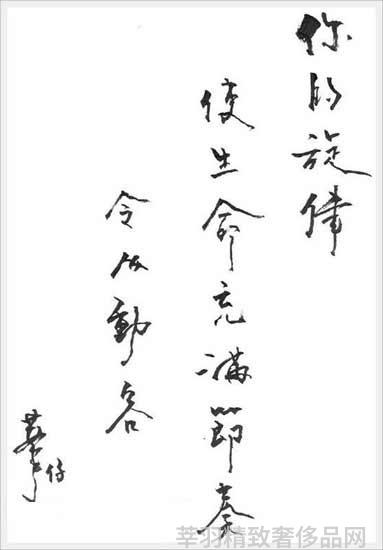 你的旋律
使生命充滿節奏
令動容
華仔
莘羽精致奢侈品网